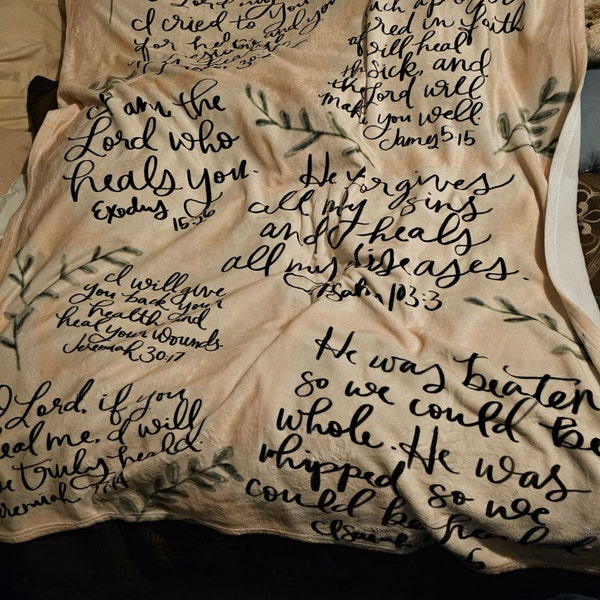 I cried to you
for help and you
I am the
Lord who
heals you.
Exodus
15:26
in faith
will heal
the sick, and
the Lord will
make you well.
James 5:15
He forgives
all my sins
and heals
all my diseases.
Psalm 103:3
I will give
you back your
health and
heal your wounds.
Jeremiah 30:17
O Lord, if you
heal me, I will
be truly healed.
Jeremiah 17:14
He was beaten
so we could be
whole. He was
whipped so we
could be healed
Isaiah